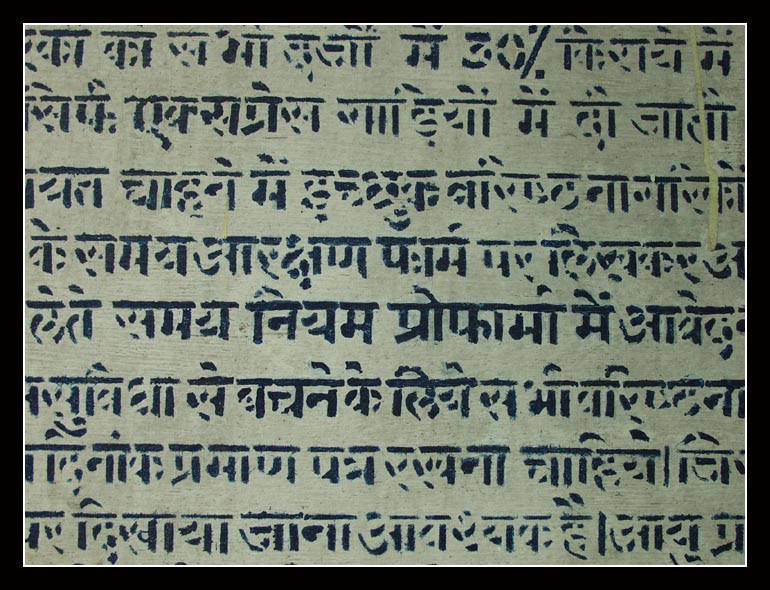 का स भी दर्जो में 30% किराये में
सिर्फ एक्सप्रेस गाडियों में दी जाती
यत चाहने में इच्छुक वरिष्ठ नागरिको
के समय आरक्षण फार्म पर लिखकर
लेते समय नियम प्रोफार्मा में आवेदन
असुविधा से बचने के लिये सभी वरिष्ठ ना
दिनांक प्रमाण पत्र रखना चाहिये।
पर दिखाया जाना आवश्यक है। आयु प्र